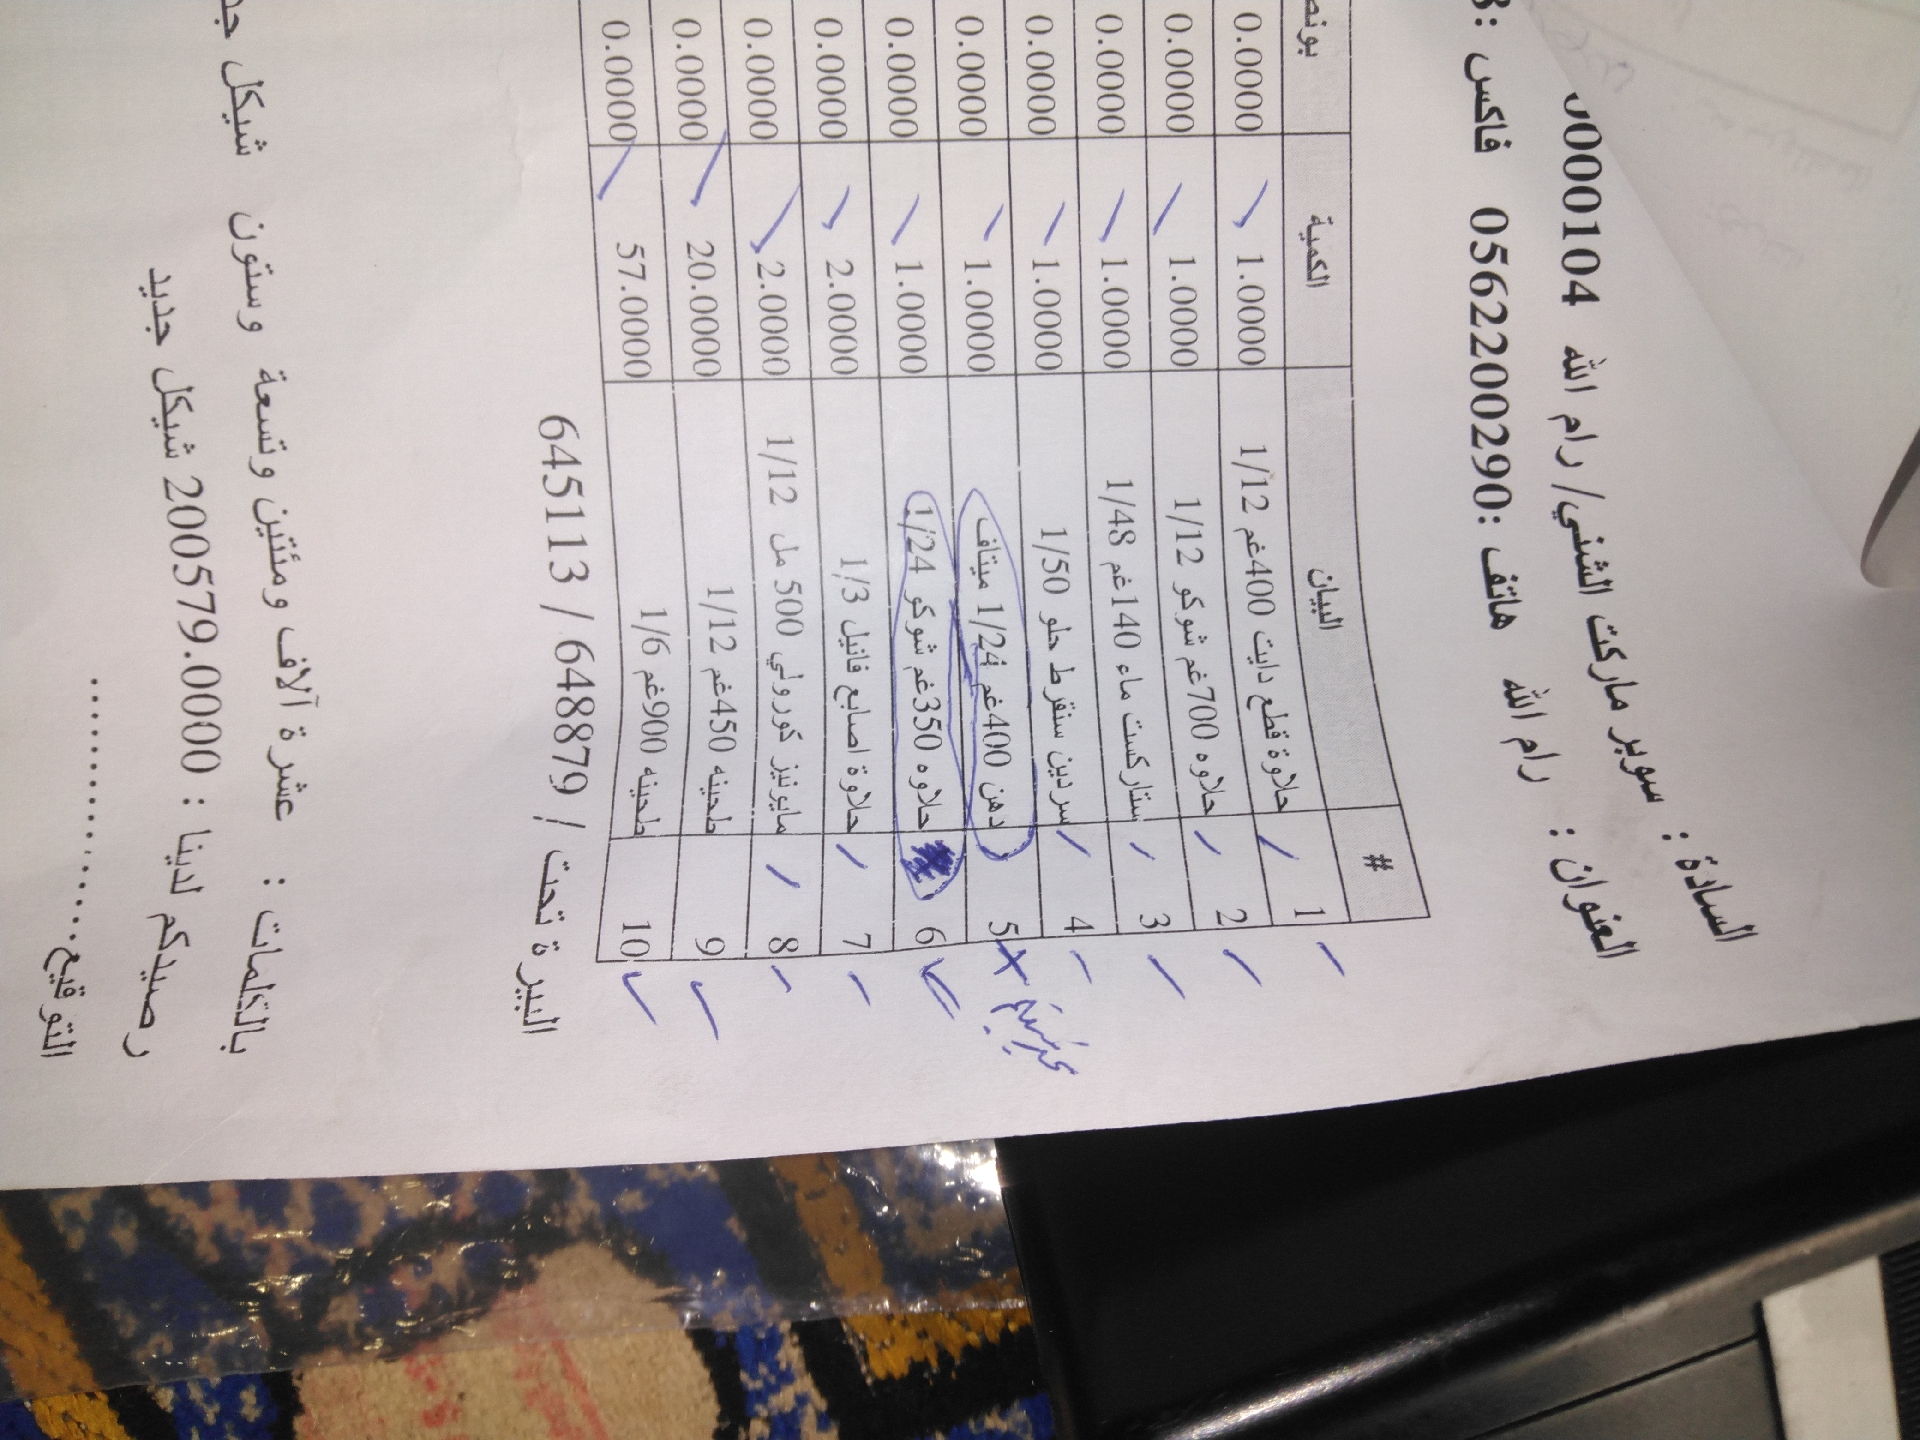 السادة : سوبر ماركت الشني/ رام الله 000104
العنوان : رام الله هاتف :0562200290 فاكس :
# البيان الكمية بونص
1 حلاوة قطع دايت 400غم 1/12 1.0000 0.0000
2 حلاوه 700غم شوكو 1/12 1.0000 0.0000
3 ستاركست ماء 140غم 1/48 1.0000 0.0000
4 سردين سنقرط حلو 1/50 1.0000 0.0000
5 دهن 400غم 1/24 ميتاف 1.0000 0.0000
6 حلاوه 350غم شوكو 1/24 1.0000 0.0000
7 حلاوة اصابع فانيل 1/3 2.0000 0.0000
8 مايونيز كورولي 500 مل 1/12 2.0000 0.0000
9 طحينه 450غم 1/12 20.0000 0.0000
10 طحينه 900غم 1/6 57.0000 0.0000
البيرة تحت / 648879 / 645113
بالكلمات : عشرة آلاف ومئتين وتسعة وستون شيكل
رصيدكم لدينا : 200579.0000 شيكل جديد
التوقيع....................